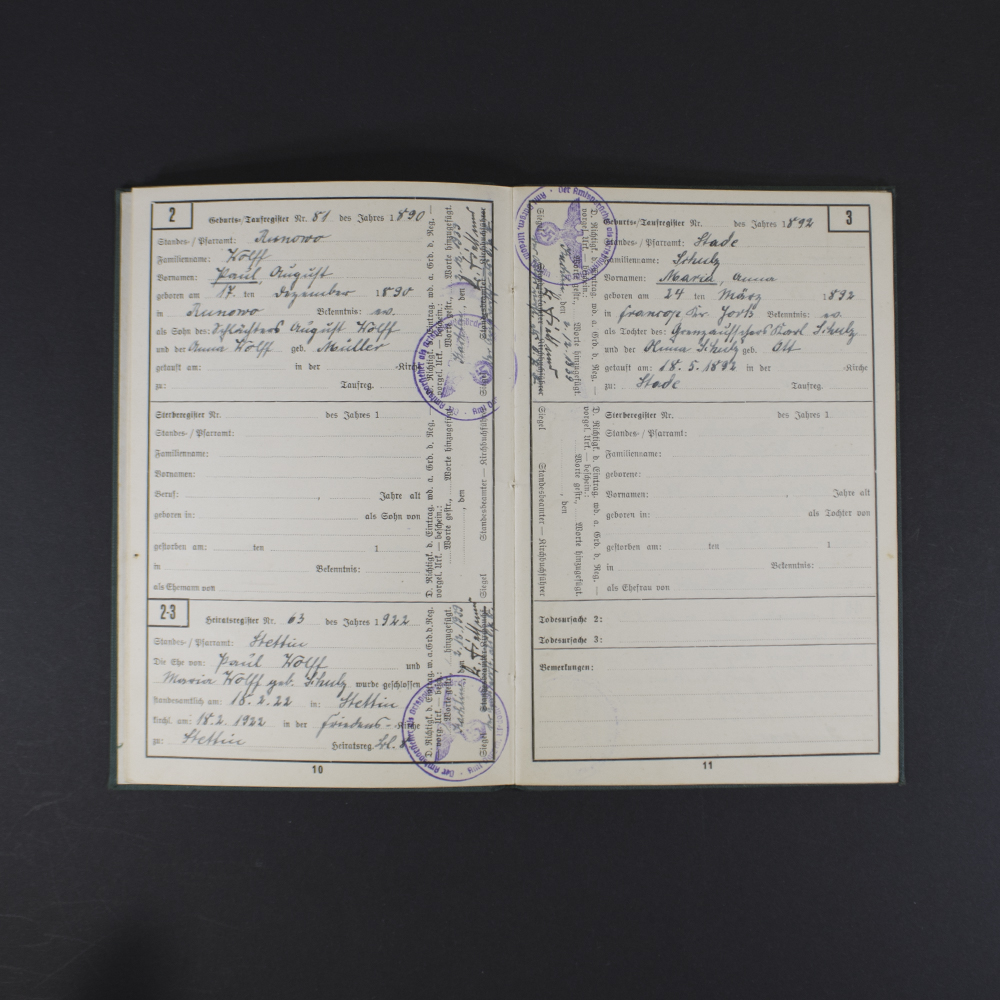 2
Geburts-/Taufregister Nr. 81 des Jahres 1890
Standes-/Pfarramt: Runowo
Familienname: Wolff
Vornamen: Paul, August
geboren am 17. ten Dezember 1890
in Runowo Bekenntnis: ev.
als Sohn des: Schlächters August Wolff
und der Anna Wolff geb. Müller
getauft am: in der -Kirche
zu: Taufreg.
Sterberegister Nr. des Jahres 1
Standes-/Pfarramt:
Familienname:
Vornamen:
Beruf: , Jahre alt
geboren in: als Sohn von
gestorben am: ten 1
in Bekenntnis:
als Ehemann von
2-3
Heiratsregister Nr. 63 des Jahres 1922
Standes-/Pfarramt: Stettin
Die Ehe von: Paul Wolff und
Maria Wolff geb. Schulz wurde geschlossen
standesamtlich am: 18.2.22 in: Stettin
kirchl. am: 18.2.1922 in der Friedens-Kirche
zu: Stettin Heiratsreg.
D. Richtigk. d. Eintrag. wd. a. Grd. d. Reg. —
vorgel. Urk. — beschein.:
Worte gestr., Worte hinzugefügt.
, den
Siegel Standesbeamter — Kirchbuchführer
10
3
Geburts-/Taufregister Nr. des Jahres 1892
Standes-/Pfarramt: Stade
Familienname: Schulz
Vornamen: Maria, Anna
geboren am 24 ten März 1892
in Francop Kr. Jork Bekenntnis: ev.
als Tochter des: Karl Schulz
und der Anna Schulz geb. Ott
getauft am: 18.5.1892 in der -Kirche
zu: Stade Taufreg.
Sterberegister Nr. des Jahres 1
Standes-/Pfarramt:
Familienname:
geborene:
Vornamen: , Jahre alt
geboren in: als Tochter von
gestorben am: ten 1
in Bekenntnis:
als Ehefrau von
D. Richtigk. d. Eintrag. wd. a. Grd. d. Reg. —
vorgel. Urk. — beschein.:
Worte gestr., Worte hinzugefügt.
, den
Siegel Standesbeamter — Kirchbuchführer
Todesursache 2:
Todesursache 3:
Bemerkungen:
11